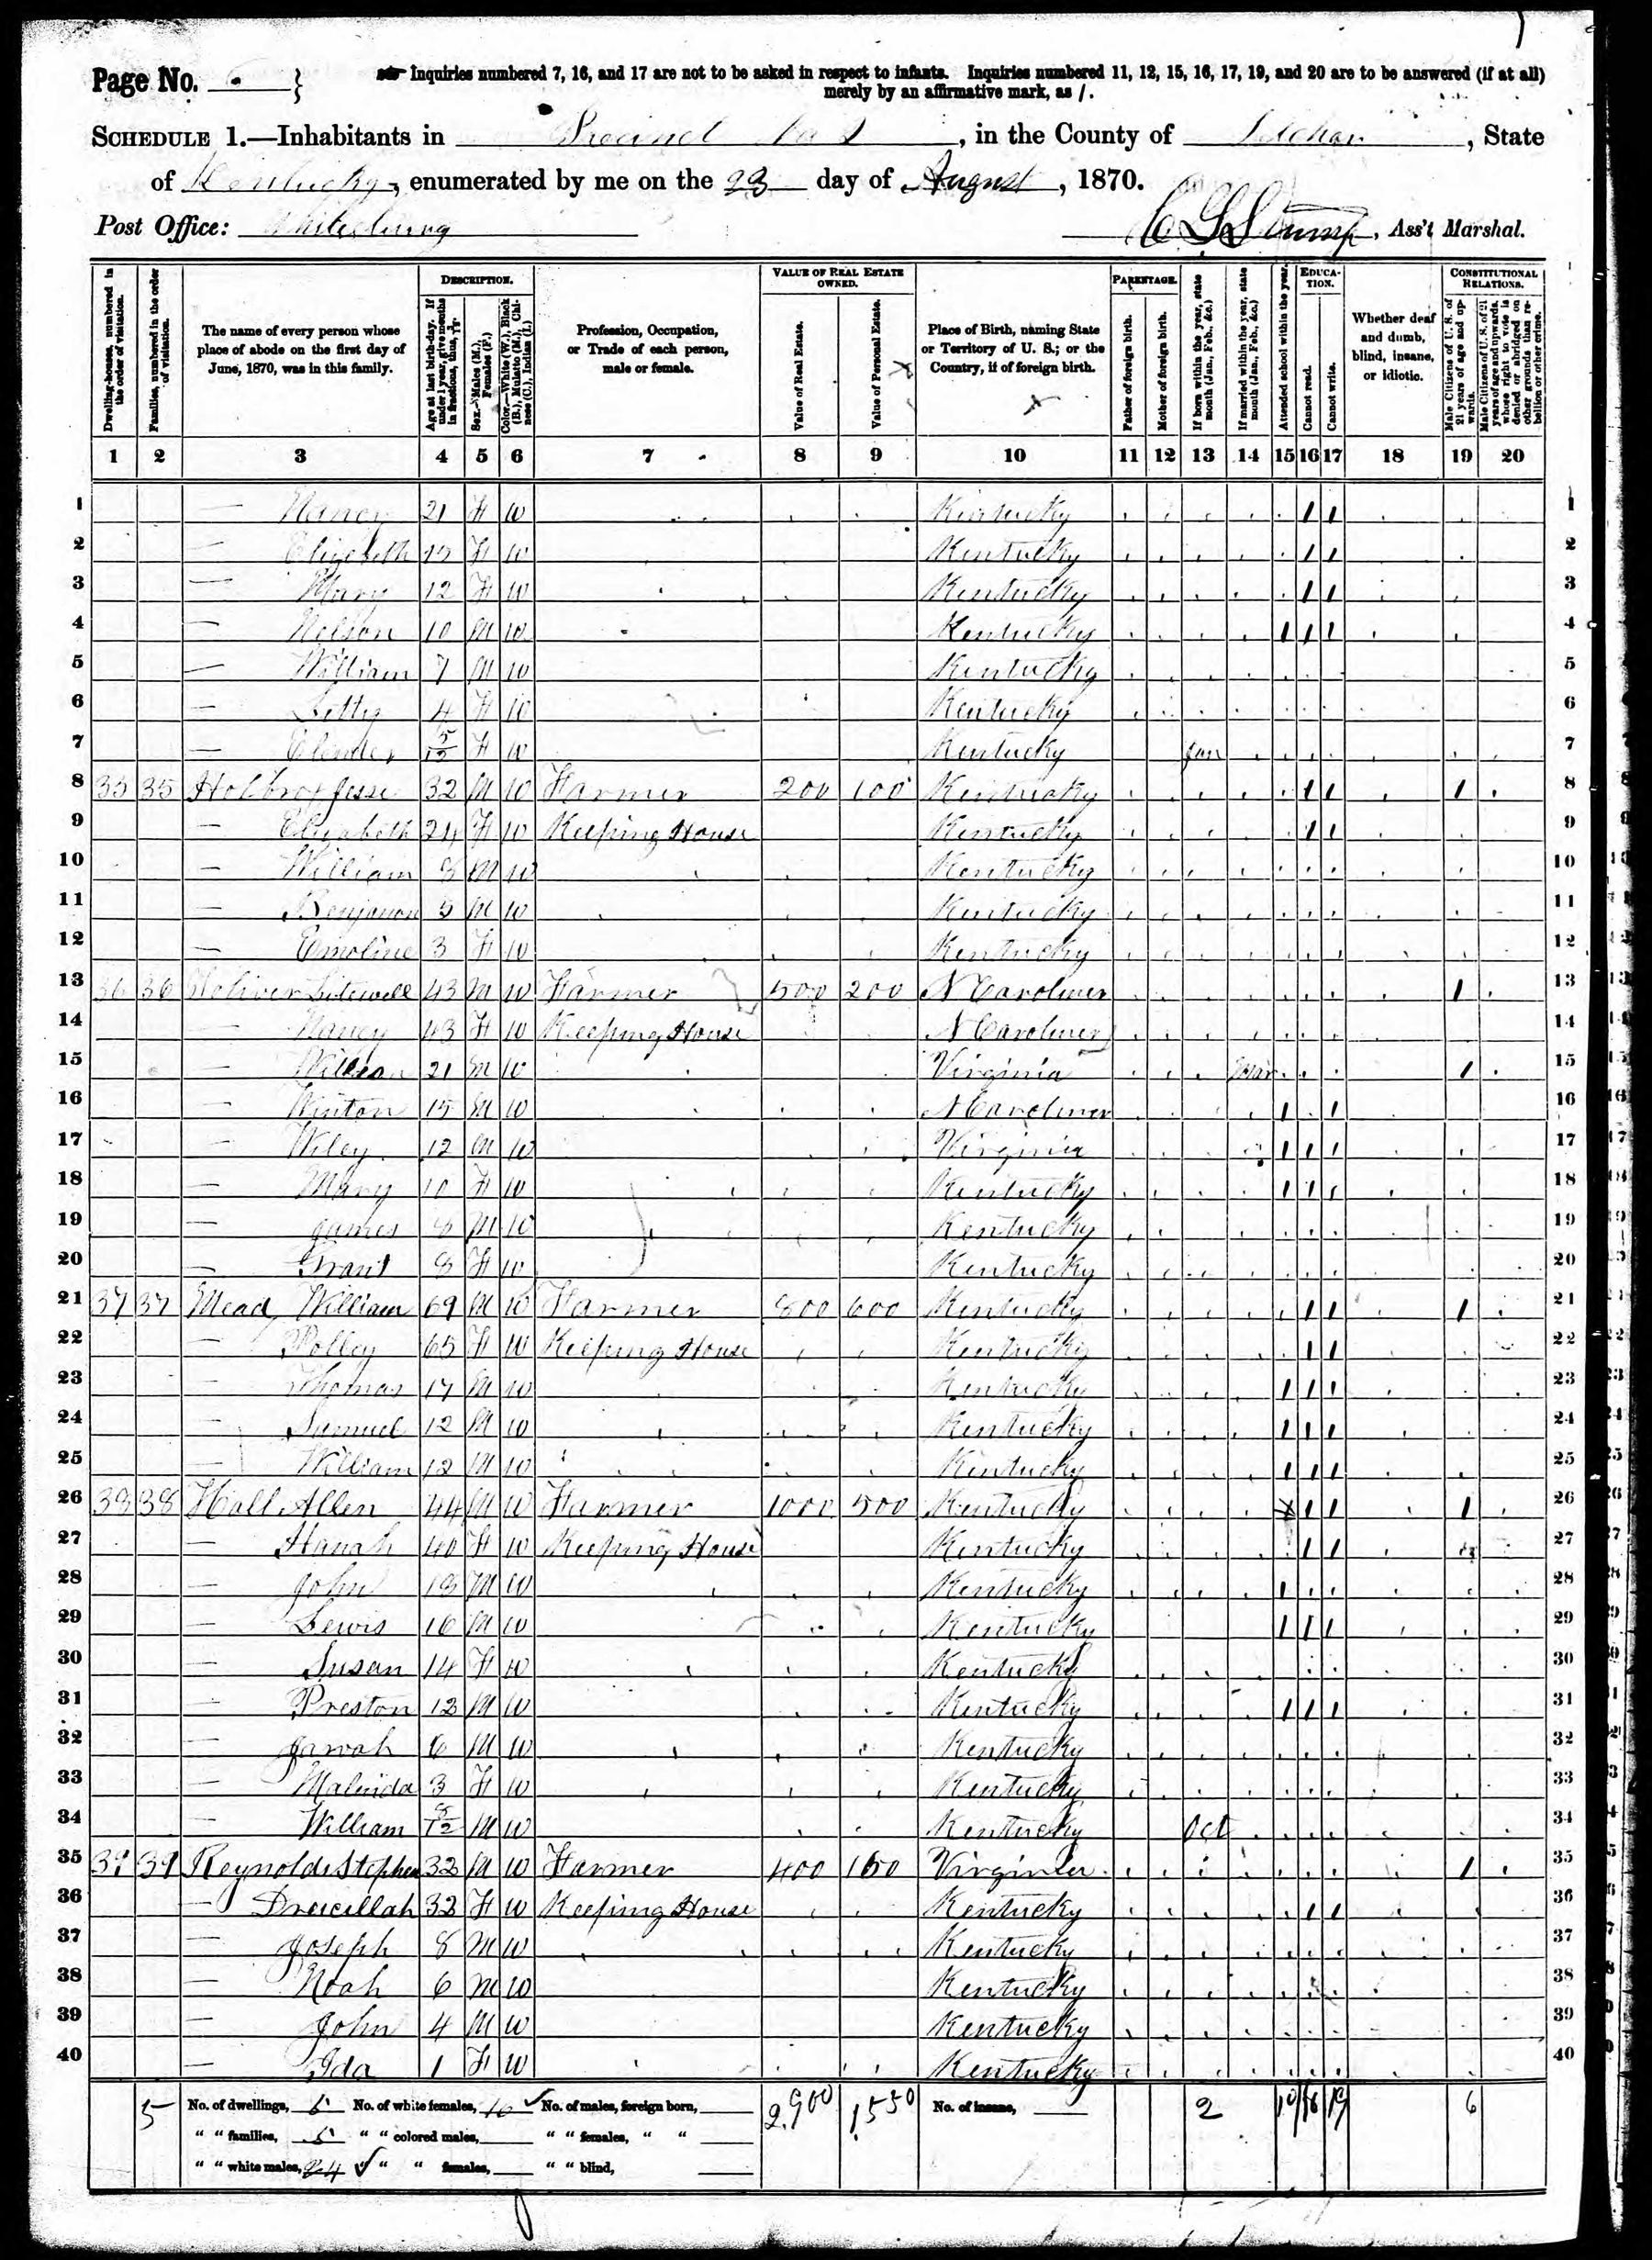 Page No. 
Inquiries numbered 7, 16, and 17 are not to be asked in respect to infants. Inquiries numbered 11, 12, 15, 16, 17, 19, and 20 are to be answered (if at all)
merely by an affirmative mark, as /.
SCHEDULE 1.—Inhabitants in Precinct No , in the County of Letcher, State
of Kentucky, enumerated by me on the 23 day of August, 1870.
Post Office: Whitesburg
C G S Stump, Ass't Marshal.
Dwelling-houses, numbered in the order of visitation.
Families, numbered in the order of visitation.
The name of every person whose place of abode on the first day of June, 1870, was in this family.
DESCRIPTION.
Age at last birth-day. If under 1 year, give months in fractions, thus, 3/12.
Sex.—Males (M.), Females (F.)
Color.—White (W.), Black (B.), Mulatto (M.), Chinese (C.), Indian (I.)
Profession, Occupation, or Trade of each person, male or female.
VALUE OF REAL ESTATE OWNED.
Value of Real Estate.
Value of Personal Estate.
Place of Birth, naming State or Territory of U. S.; or the Country, if of foreign birth.
PARENTAGE.
Father of foreign birth.
Mother of foreign birth.
If born within the year, state month (Jan., Feb., &c.)
If married within the year, state month (Jan., Feb., &c.)
Attended school within the year.
EDUCATION.
Cannot read.
Cannot write.
Whether deaf and dumb, blind, insane, or idiotic.
CONSTITUTIONAL RELATIONS.
Male Citizens of U. S. of 21 years of age and upwards.
Male Citizens of U. S. of 21 years of age and upwards, whose right to vote is denied or abridged on other grounds than rebellion or other crime.
1 2 3 4 5 6 7 8 9 10 11 12 13 14 15 16 17 18 19 20
1 — Nancy 21 F W Kentucky 1 1 1
2 — Elizabeth F W Kentucky 1 1 2
3 — Mary 12 F W Kentucky 1 1 3
4 — Nelson 10 M W Kentucky 1 1 1 4
5 — William 7 M W Kentucky 5
6 — Letty 4 F W Kentucky 6
7 — 5/12 F W Kentucky Jan 7
8 35 35 Jesse 32 M W Farmer 200 100 Kentucky 1 1 1 8
9 — Elizabeth 24 F W Keeping House Kentucky 1 1 9
10 — William 8 M W Kentucky 10
11 — 5 M W Kentucky 11
12 — Emoline 3 F W Kentucky 12
13 36 36 43 M W Farmer 500 200 N Caroliner 1 13
14 — Nancy 43 F W Keeping House N Caroliner 14
15 — 21 M W Virginia Mar 1 15
16 — Winton 15 M W N Caroliner 1 1 16
17 — Wiley 12 M W Virginia 1 1 1 17
18 — Mary 10 F W Kentucky 1 1 1 18
19 — James 8 M W Kentucky 19
20 — 8 F W Kentucky 20
21 37 37 Mead William 69 M W Farmer 800 600 Kentucky 1 1 1 21
22 — Polley 65 F W Keeping House Kentucky 1 1 22
23 — Thomas 17 M W Kentucky 1 1 1 23
24 — Samuel 12 M W Kentucky 1 1 1 24
25 — William 12 M W Kentucky 1 1 1 25
26 38 38 Hall Allen 44 M W Farmer 1000 500 Kentucky 1 1 1 26
27 — Hanah 40 F W Keeping House Kentucky 1 1 27
28 — John 18 M W Kentucky 1 28
29 — Lewis 16 M W Kentucky 1 1 1 29
30 — Susan 14 F W Kentucky 30
31 — Preston 12 M W Kentucky 1 1 1 31
32 — 6 M W Kentucky 32
33 — Malinda 3 F W Kentucky 33
34 — William 8/12 M W Kentucky Oct 34
35 39 39 Reynolds Stephen 32 M W Farmer 400 150 Virginia 1 35
36 — Drucillah 32 F W Keeping House Kentucky 1 1 36
37 — Joseph 8 M W Kentucky 37
38 — Noah 6 M W Kentucky 38
39 — John 4 M W Kentucky 39
40 — Ida 1 F W Kentucky 40
5 No. of dwellings, 5 No. of white females, 16 No. of males, foreign born, 2,900 1,550 No. of insane, 2 10 18 19 6
" " families, 5 " " colored males, " " females, " "
" " white males, 24 " " females, " " blind,